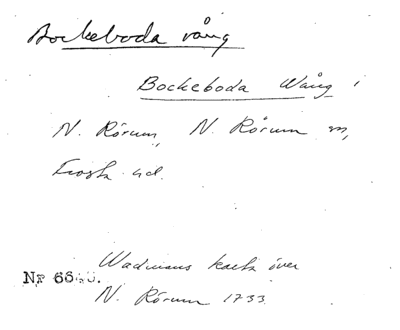 Bockeboda vång
Bockeboda Wång i
N. Rörum, N. Rörum sn,
Frosta hd.
Wadmans karta över
Nr 6640.
N. Rörum 1733.